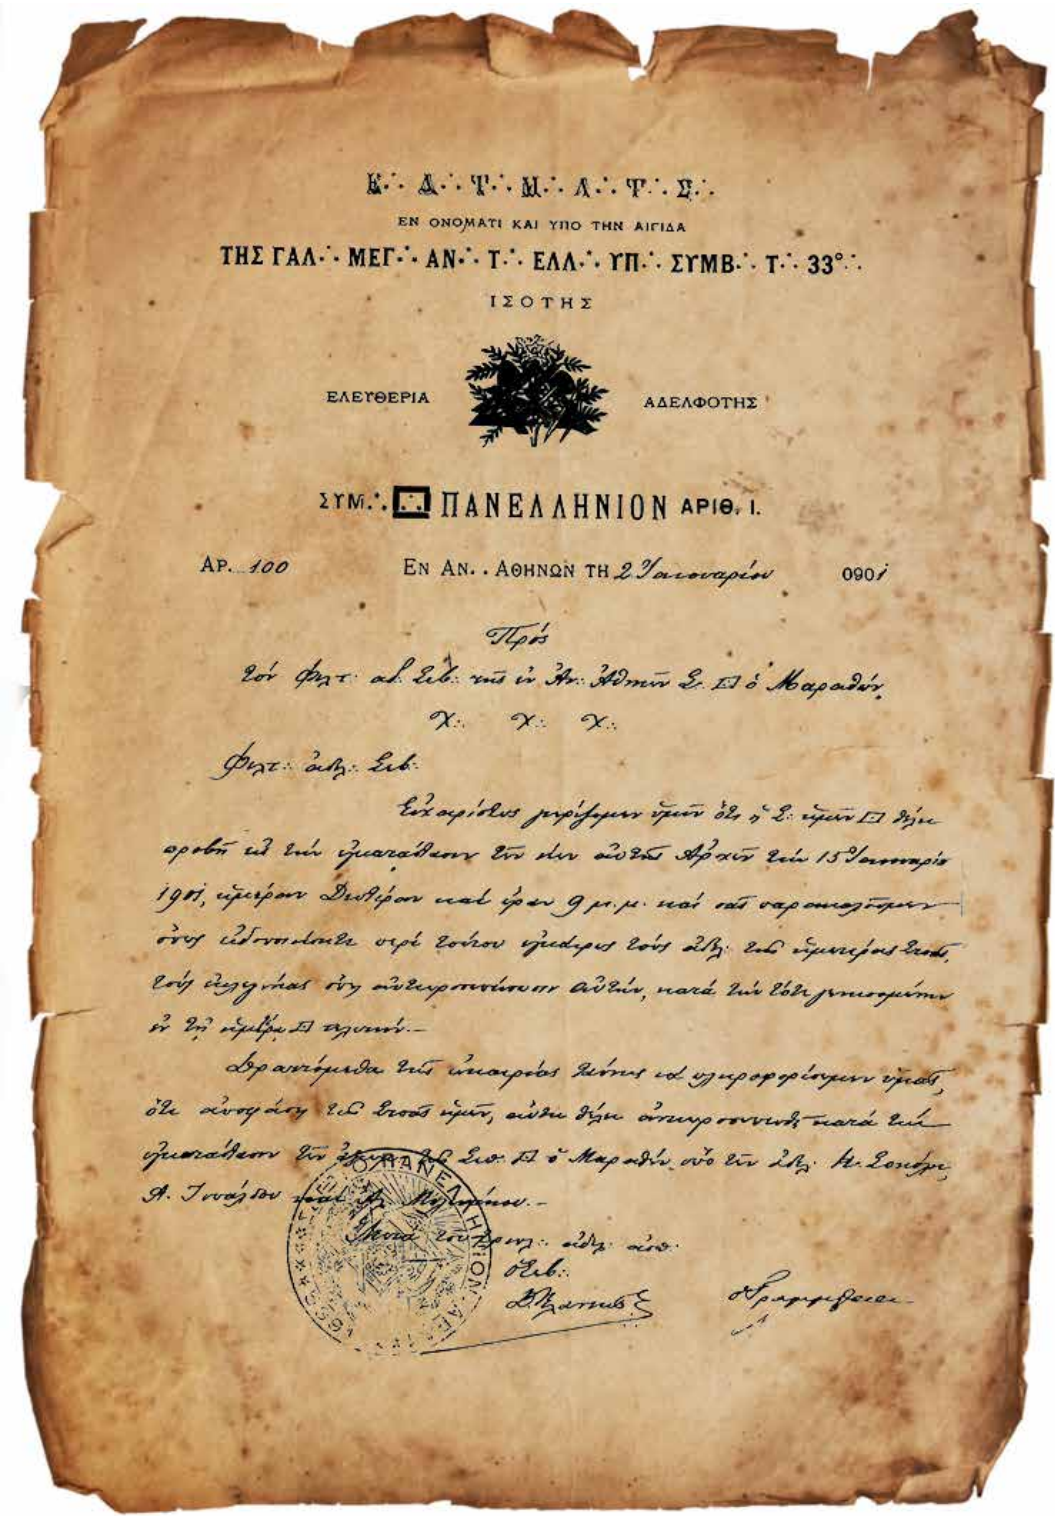 Ε∴ Δ∴ Τ∴ Μ∴ Α∴ Τ∴ Σ∴
ΕΝ ΟΝΟΜΑΤΙ ΚΑΙ ΥΠΟ ΤΗΝ ΑΙΓΙΔΑ
ΤΗΣ ΓΑΛ∴ ΜΕΓ∴ ΑΝ∴ Τ∴ ΕΛΛ∴ ΥΠ∴ ΣΥΜΒ∴ Τ∴ 33°∴
ΙΣΟΤΗΣ
ΕΛΕΥΘΕΡΙΑ ΑΔΕΛΦΟΤΗΣ
ΣΥΜ∴ ΠΑΝΕΛΛΗΝΙΟΝ ΑΡΙΘ. Ι.
ΑΡ. 100 ΕΝ ΑΝ. . ΑΘΗΝΩΝ ΤΗ 2 Ἰανουαρίου 0901
Πρός
τόν Φιλτ: ἀδ. Σεβ: τῆς ἐν Ἀν: Ἀθηνῶν Σ. ὁ Μαραθών
Χ∴ Χ∴ Χ∴
Φιλτ∴ ἀδλ∴ Σεβ∴
Εὐχαρίστως γνωρίζομεν ὑμῖν ὅτι ἡ Σ: ἡμῶν θέλει
προβῆ εἰς τήν ἐγκατάστασιν τῶν νέων αὐτῆς Ἀρχῶν τήν 15 Ἰανουαρίου
1901, ἡμέραν Δευτέραν καί ὥραν 9 μ.μ. καί σᾶς παρακαλοῦμεν
ὅπως εἰδοποιήσητε περί τούτου ἐγκαίρως τούς ἀδλ: τῆς ὑμετέρας Στοᾶς,
τούς αὐτήν, κατά τήν τότε γενησομένην
ἐν τῇ ἡμετέρᾳ τελετήν.–
Δραττόμεθα τῆς εὐκαιρίας ταύτης νά πληροφορήσωμεν ὑμᾶς,
ὅτι τῆς Στοᾶς ἡμῶν, αὕτη θέλει ἀντιπροσωπευθῆ κατά τήν
ἐγκατάστασιν τῶν τῆς Σεπ: ὁ Μαραθών, ὑπό τῶν ἀδλ:
Α. καί
Μετά τοῦ ἀδελ: ἀσπ:
ὁ Σεβ∴
ὁ Γραμματεύς